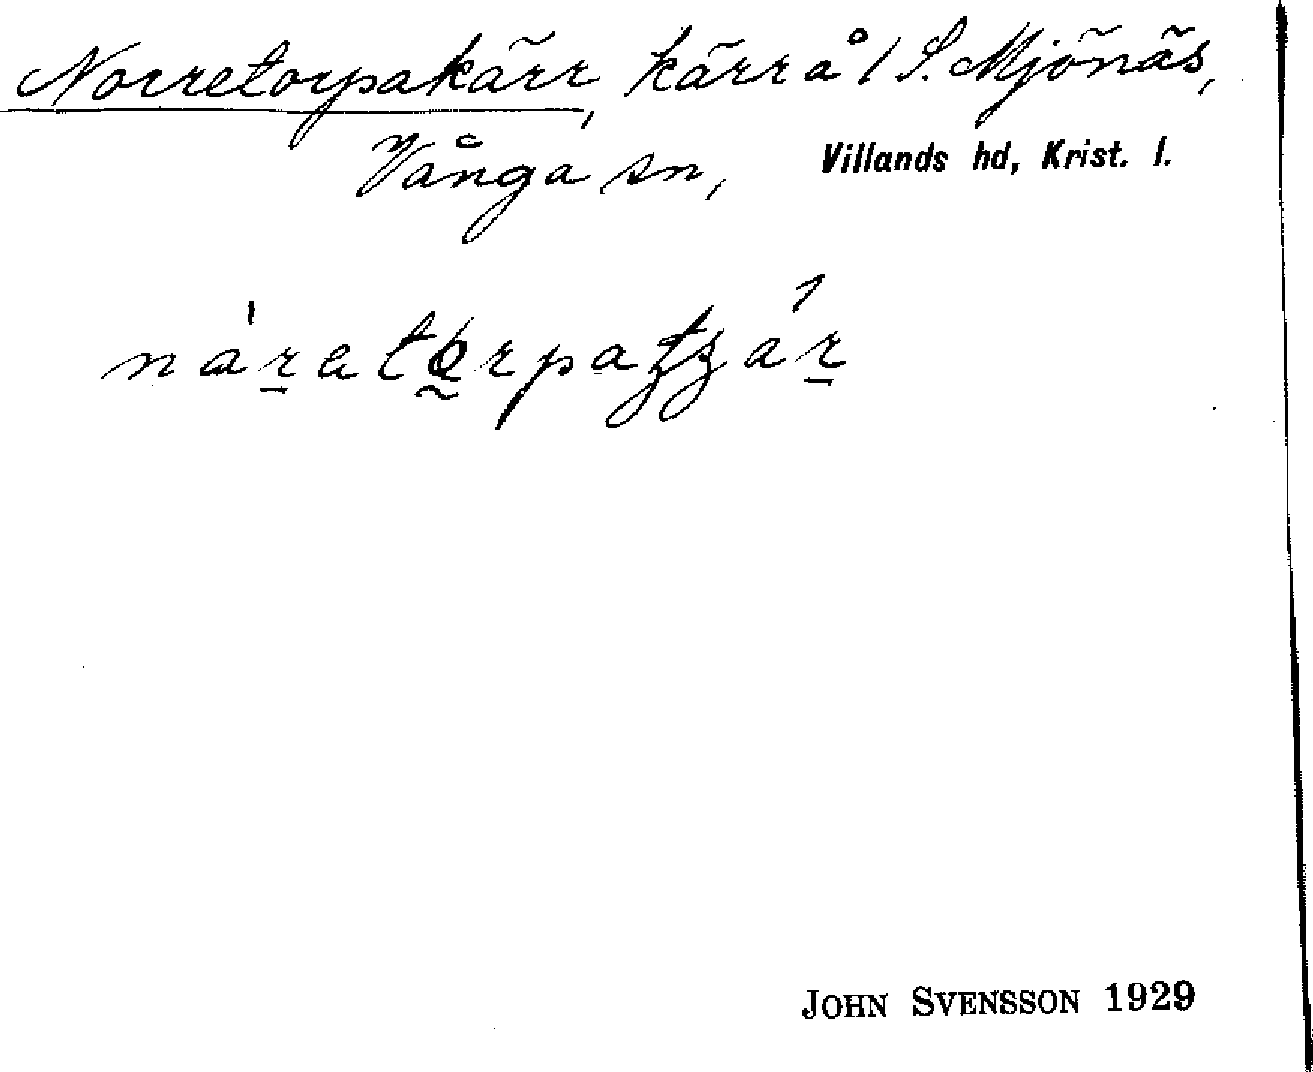 Norretorpakärr, kärr å 1 S. Mjönäs,
Vånga sn, Villands hd, Krist. l.
JOHN SVENSSON 1929